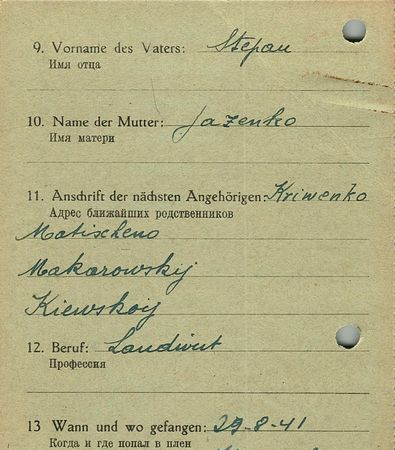 9. Vorname des Vaters: Stepan
Имя отца
10. Name der Mutter: Jazenko
Имя матери
11. Anschrift der nächsten Angehörigen: Kriwenko
Адрес ближайших родственников
Matischeno
Makarowskij
Kiewskoij
12. Beruf: Landwirt
Профессия
13 Wann und wo gefangen: 29-8-41
Когда и где попал в плен